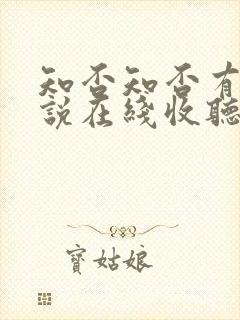 知否知否有
説在綫收聽
寳姑娘